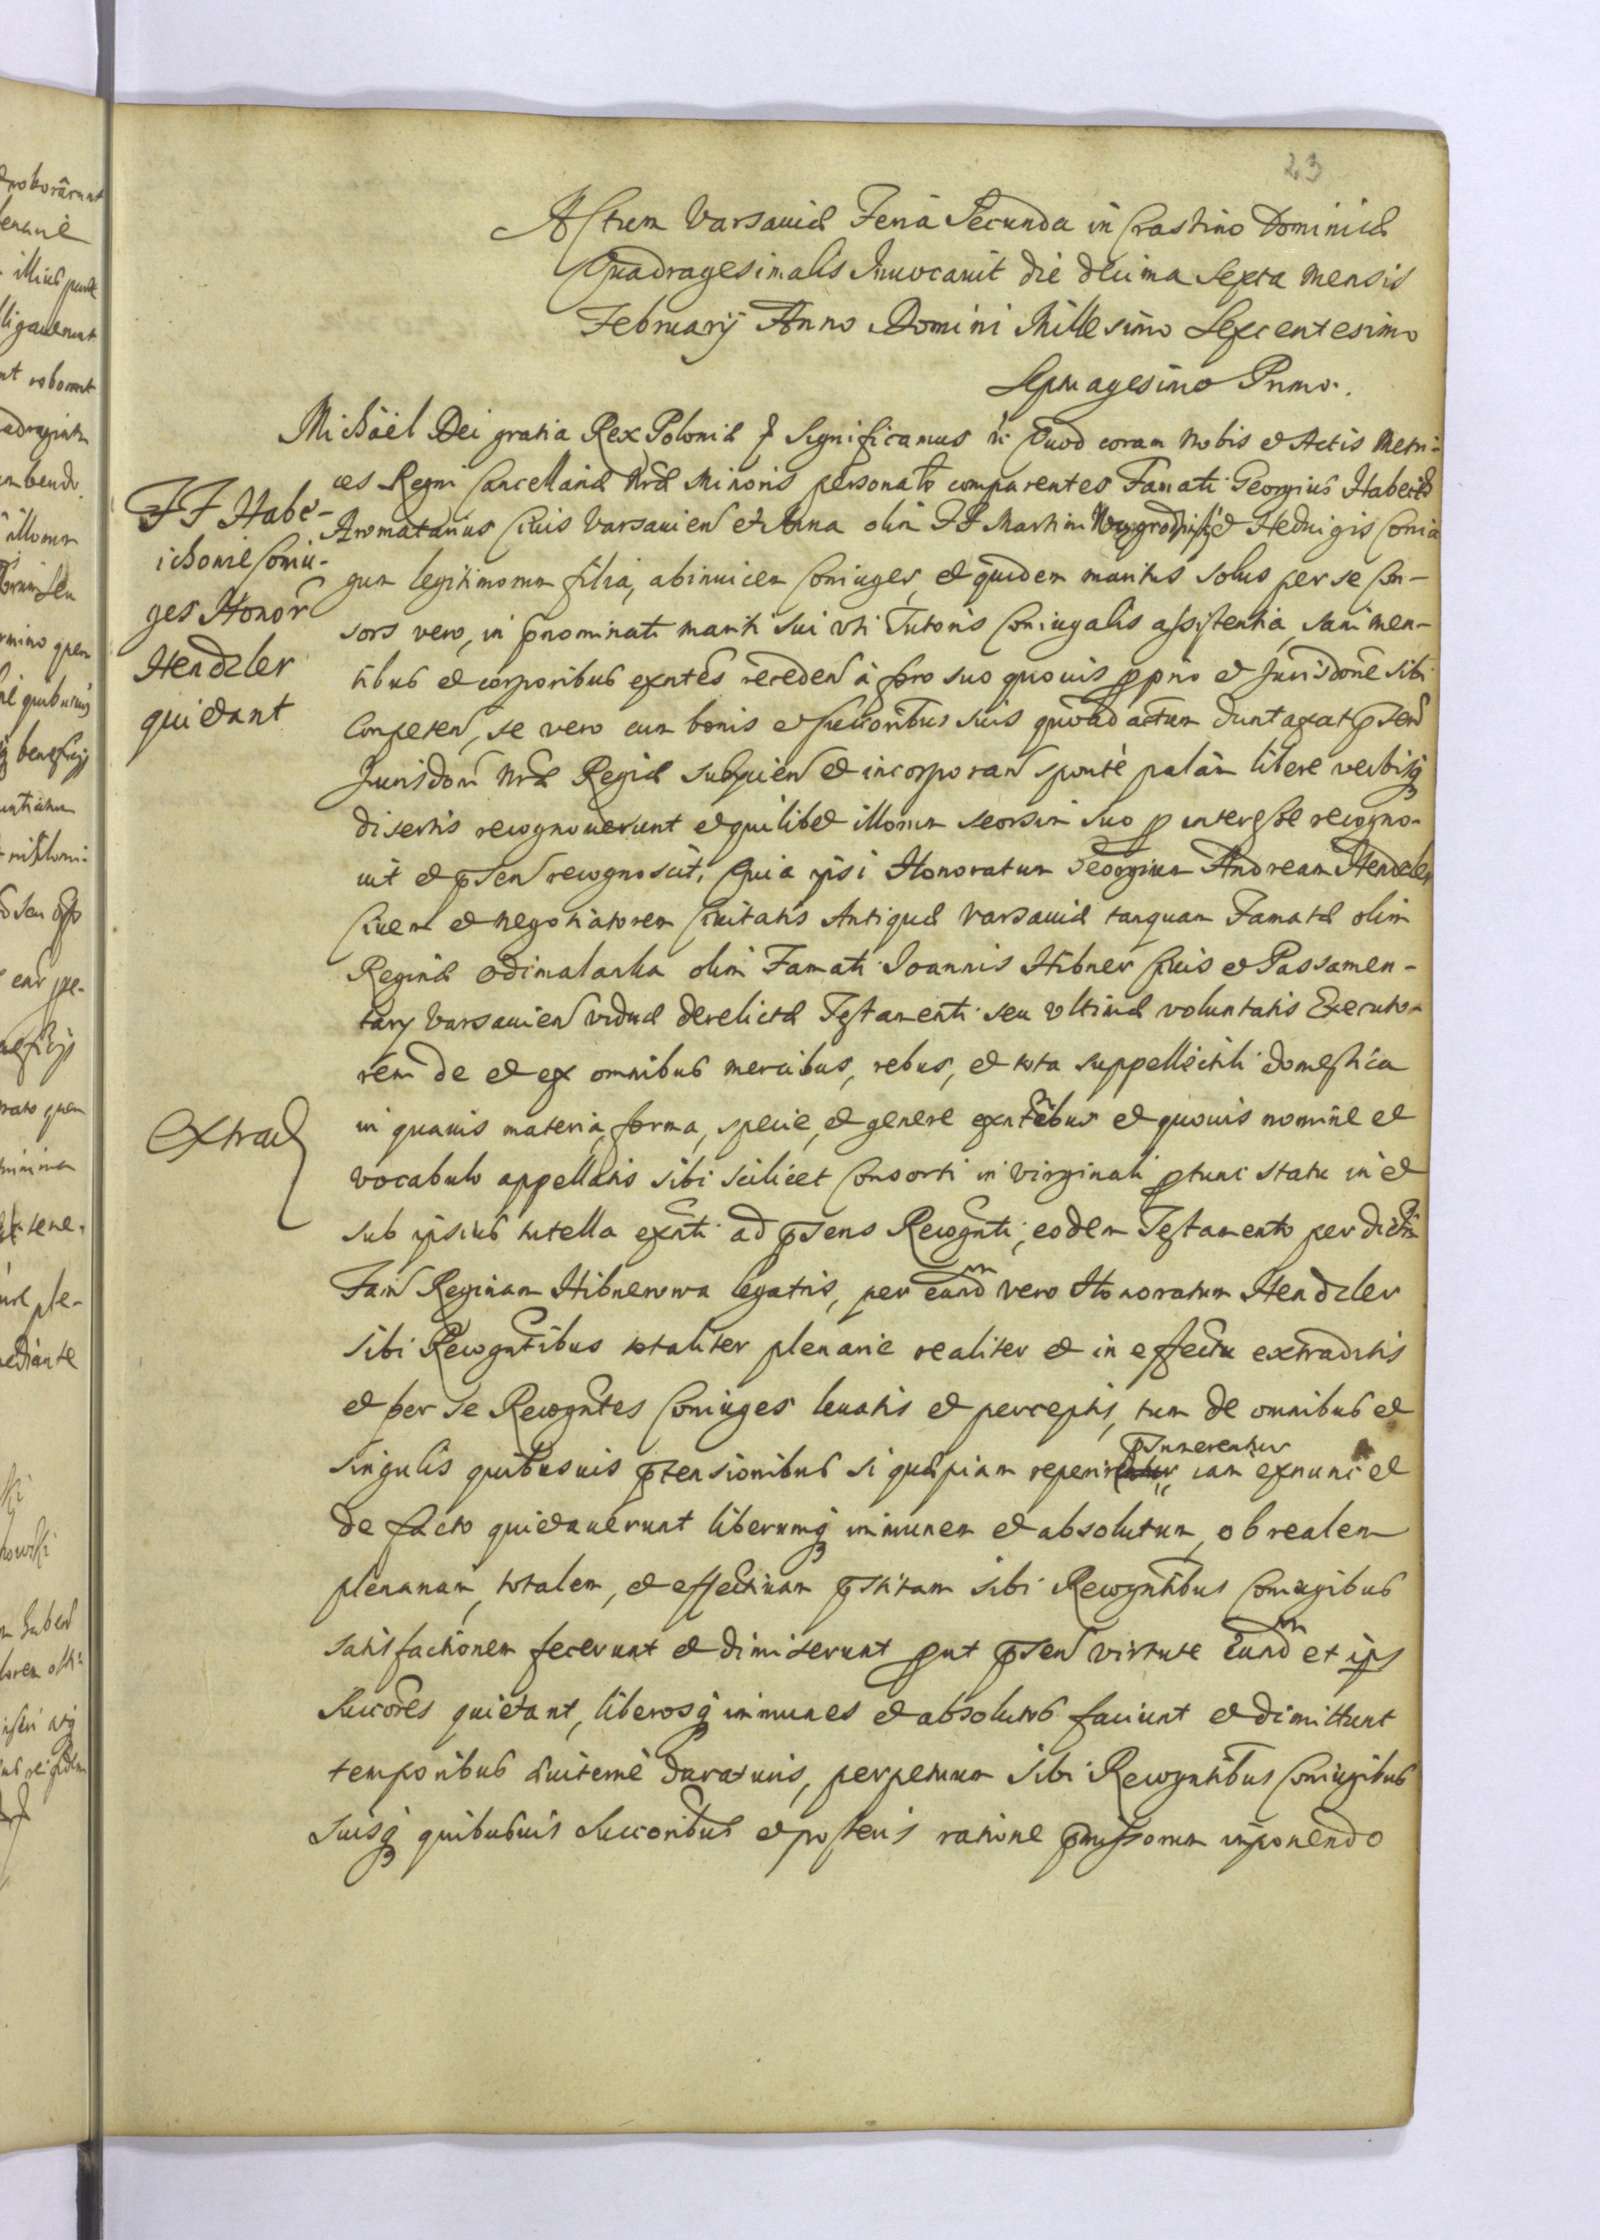 23
Actum Varsaviæ Feria Secunda in Crastino Dominicæ
Quadragesimalis Invocavit die decima sexta mensis
Februarij Anno Domini Millesimo Sexcentesimo
Septuagesimo Primo.
Michaël Dei gratia Rex Poloniæ & Significamus &c Quod coram nobis et Actis Metri-
ces Regni Cancellariæ Nræ Minoris personalr comparentes Famati Georgius Habeich
Aromatarius Civis Varsavien et Anna olim FF Martini Wyogrodzkij et Hedvigis Coniu
gum legitimorum filia, abinuicem Coniuges, et quidem maritus solus per se Con-
sors vero, in pnominati mariti sui vti Tutoris Coniugalis assistentia, sani men-
tibus et corporibus exntes receden à foro suo quovis pprio et Jurisdone sibi
Competen, se vero cum bonis et succoribus suis quoad actum duntaxat pnsem
Jurisdoni Nræ Regiæ subijcien et incorporan sponte palam libere verbisq
disertis recognoverunt et quilibet illorum seorsim suo p interesse recogno-
uit et pnsen recognoscit, Quia ipsi Honoratum Georgium Andream Hendzler
Civem et negotiatorem Civitatis Antiquæ Varsaviæ tanquam Famatæ olim
Reginæ Odimalarka olim Famati Joannis Hibner Civis et Passamen-
tarij Varsavien viduæ derelictæ Testamenti seu Vltimæ voluntatis Executo-
rem de et ex omnibus mercibus, rebus, et tota suppellectili domestica
in quavis materia, forma, specie, et genere exntibus et quovis nomine et
vocabulo appellatis sibi scilicet Consorti in virginali ptunc statu in et
sub ipsius tutella exnti ad pnsens Recognti, eodem Testamento per dictm
Fam Reginam Hibnerowa legatis, per eundm vero Honoratum Hendzler
sibi Recogntibus totaliter plenarie realiter et in effectu extraditis
et per se Recogntes Coniuges levatis et perceptis, tum de omnibus et
singulis quibusvis ptensionibus si quæpiam reperirentur psumerentur iam exnunc et
de facto quietaverunt liberumq immunem et absolutum, ob realem
plenariam, totalem, et effectivam pstitam sibi Recogntibus Coniugibus
satisfactionem fecerunt et dimiserunt put pnsen virtute eundm et ips
succores quietant, liberosq immunes et absolutos faciunt et dimittunt
temporibus æviterne duraturis, perpetuum sibi Recogntibus Coniugibus
suisq quibusvis succoribus et posteris ratione pmissorum imponendo
FF Habe-
ichowie Coniu-
ges Honor
Hendzler
quietant
Extrad